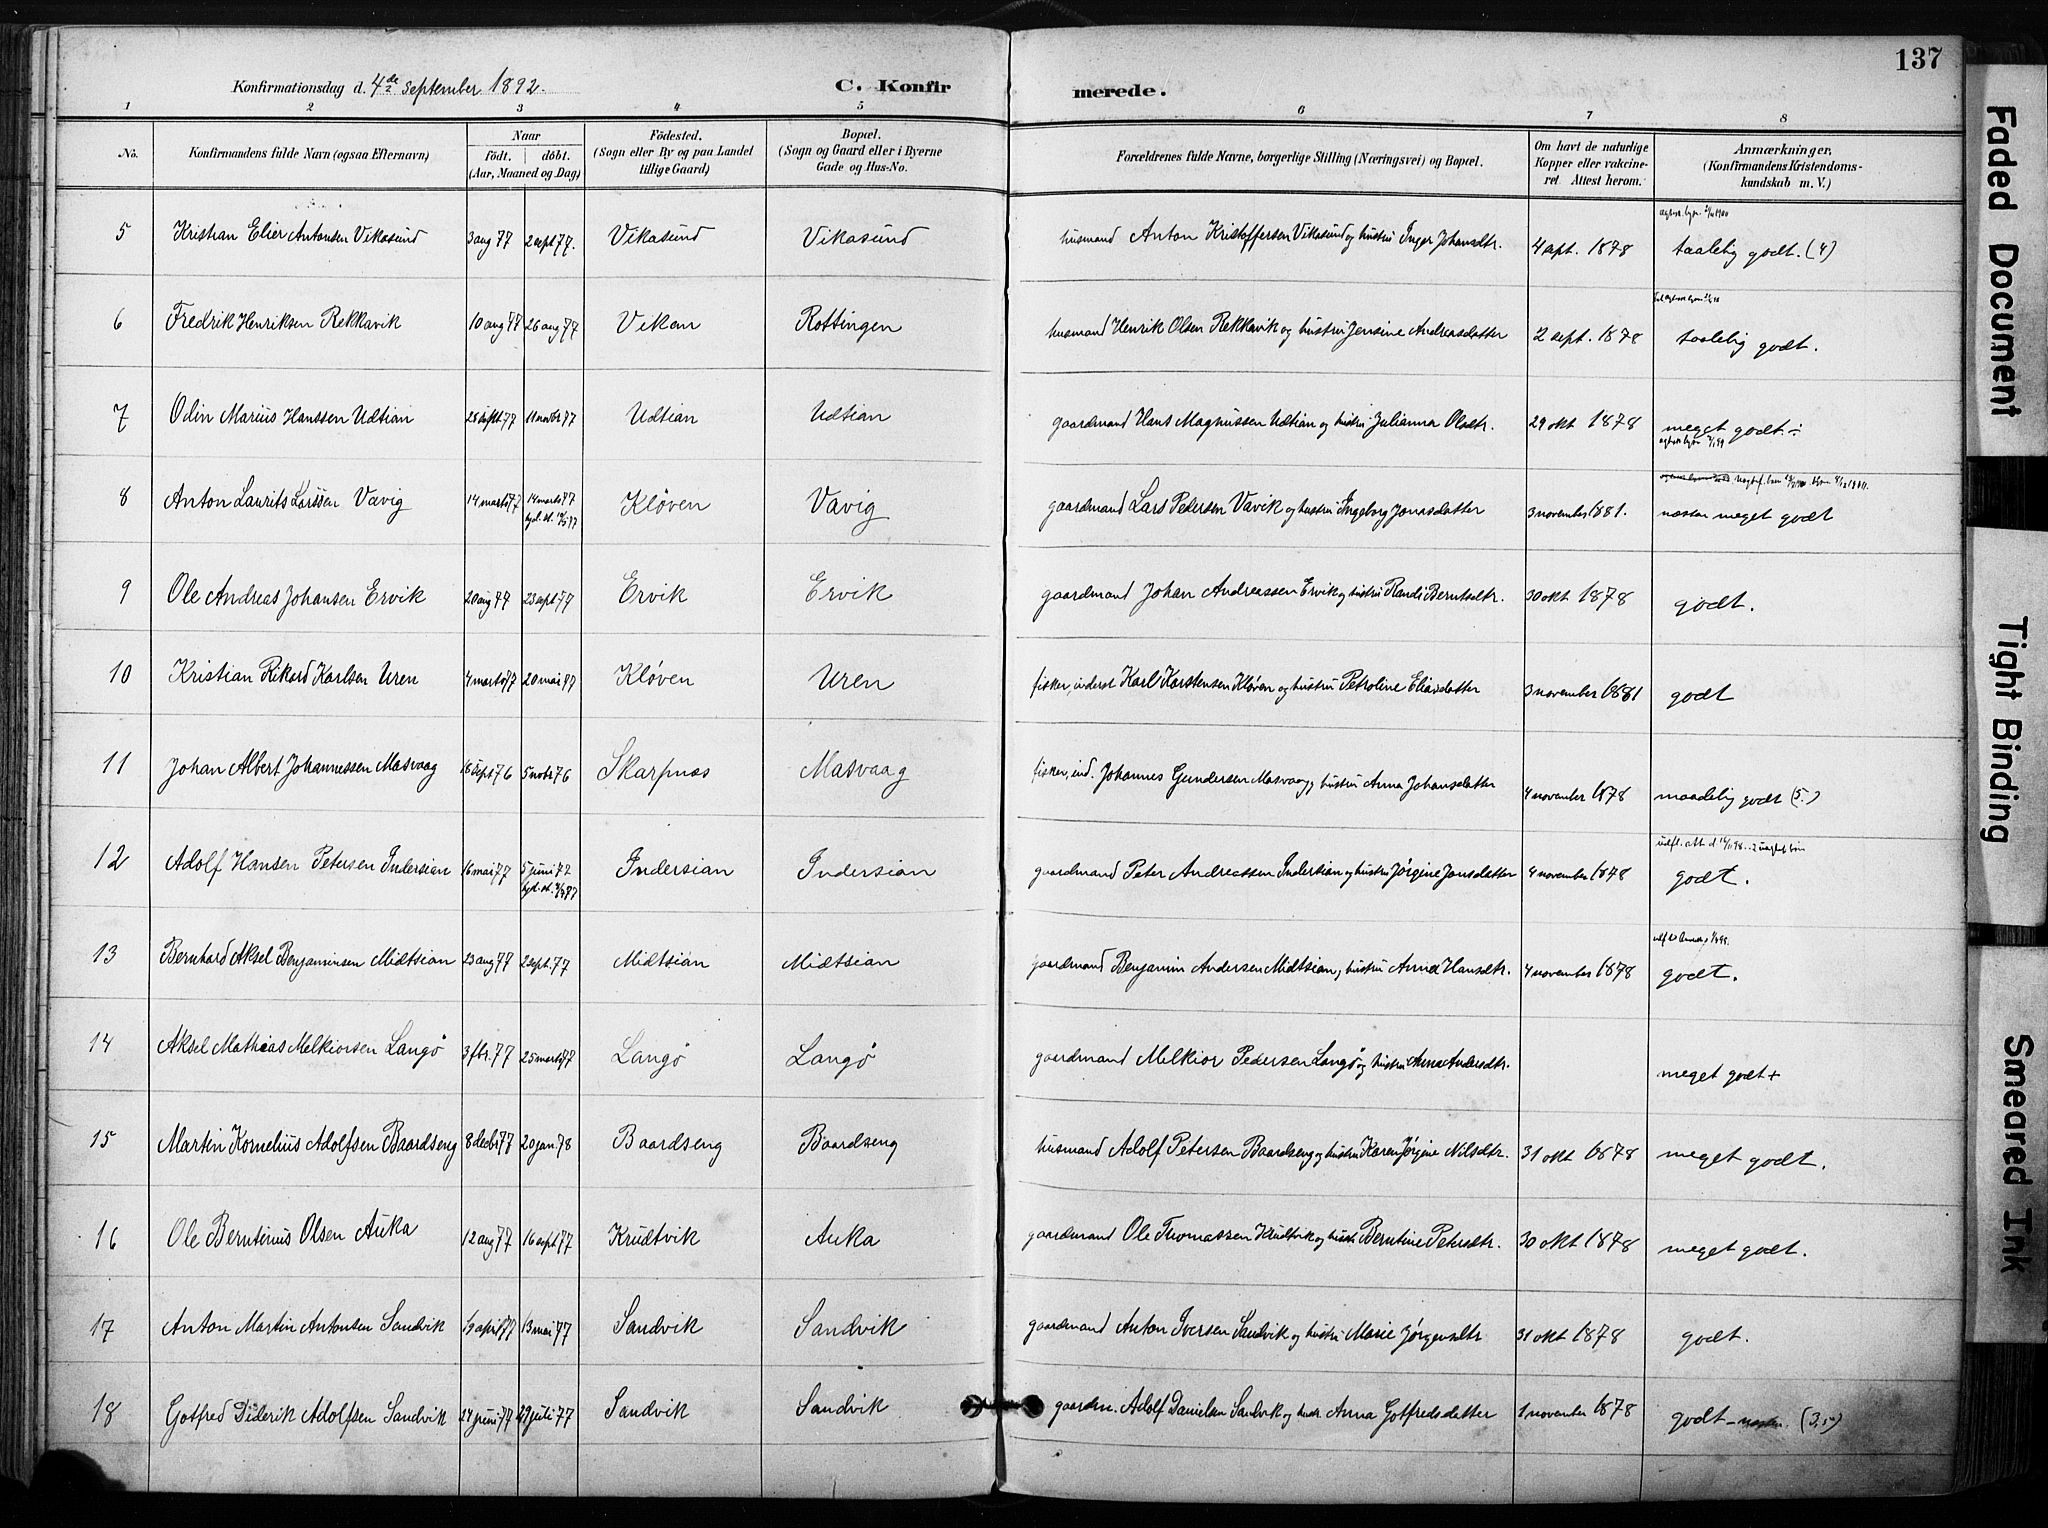 137
Konfirmationsdag d. 4de september 1892.
C. Konfirmerede.
1 2 3 4 5 6 7 8
No.
Konfirmandens fulde Navn (ogsaa Efternavn)
Naar
födt. döbt.
(Aar, Maaned og Dag)
Födested.
(Sogn eller By og paa Landet
tillige Gaard)
Bopæl.
(Sogn og Gaard eller i Byerne
Gade og Hus-No.
Forældrenes fulde Navne, borgerlige Stilling (Næringsvei) og Bopæl.
Om havt de naturlige
Kopper eller vakcine-
ret Attest herom.
Anmærkninger,
(Konfirmandens Kristendoms-
kundskab m. V.)
5 Kristian Elier Antonsen Vikasund 3 aug 77 2 sept 77. Vikasund Vikasund husmand Anton Kristoffersen Vikasund og hustru Inger Johansdtr. 4 sept. 1878 taalelig godt. (4)
6 Fredrik Henriksen Rekkavik 10 aug 77 26 aug 77 Vikan Rottingen husmand Henrik Olsen Rekkavik og hustru Jensine Andreasdatter 2 sept. 1878 taalelig godt.
7 Odin Marius Hanssen Udtian 28 sept 77 11 novbr 77 Udtian Udtian gaardmand Hans Magnussen Udtian og hustru Julianna Olsdtr. 29 okt 1878 meget godt. ÷
8 Anton Laurits Larssen Vavig 14 marts 77 14 marts 77 Kløven Vavig gaardmand Lars Pedersen Vavik og hustru Ingeborg Jonasdatter 3 november 1881. næsten meget godt
9 Ole Andreas Johansen Ervik 20 aug 77 23 sept 77 Ervik Ervik gaardmand Johan Andreassen Ervik og hustru Randi Berntsdtr. 30 okt 1878 godt.
10 Kristian Rikard Karlsen Uren 4 marts 77 20 mai 77 Kløven Uren fisker, inderst Karl Karstensen Kløven og hustru Petroline Eliasdatter 3 november 1881 godt
11 Johan Albert Johannessen Masvaag 16 sept 76 5 nobr 76 Skarpnes Masvaag fisker, ind. Johannes Gundersen Masvaag og hustru Anna Johansdatter 4 november 1878 maadelig godt (5.)
12 Adolf Hansen Petersen Indersian 16 mai 77 5 juni 77 Indersian Indersian gaardmand Peter Andreassen Indersian og hustru Jørgine Jonsdatter 4 november 1878 godt.
13 Bernhard Aksel Benjaminsen Midtsian 23 aug 77 2 sept. 77 Midtsian Midtsian gaardmand Benjamin Andersen Midtsian og hustru Anna Hansdtr. 4 november 1878 godt.
14 Aksel Mathias Melkiorsen Langö 3 fbr. 77 25 marts 77 Langö Langö gaardmand Melkior Pedersen Langö og hustru Anna Andersdtr. meget godt +
15 Martin Kornelius Adolfsen Baardseng 8 decbr 77 20 jan 78 Baardseng Baardseng husmand Adolf Petersen Baardseng og hustru Karen Jørgine Nilsdtr. 31 okt 1878 meget godt.
16 Ole Berntinus Olsen Auka 12 aug 77 16 sept 77 Krudtvik Auka gaardmand Ole Thomassen Krudtvik og hustr. Berntine Petersdtr. 30 okt 1878 meget godt.
17 Anton Martin Antonsen Sandvik 19 april 77 13 mai 77 Sandvik Sandvik gaardmand Anton Iversen Sandvik og hustru Marie Jørgensdtr 31 okt 1878 godt.
18 Gotfred Diderik Adolfsen Sandvik 24 juni 77 29 juli 77 Sandvik Sandvik gaardm. Adolf Danielsen Sandvik og hustr. Anna Gotfredsdatter 1 november 1878 godt – næsten. (3,5)
Faded Document
Tight Binding
Smeared Ink